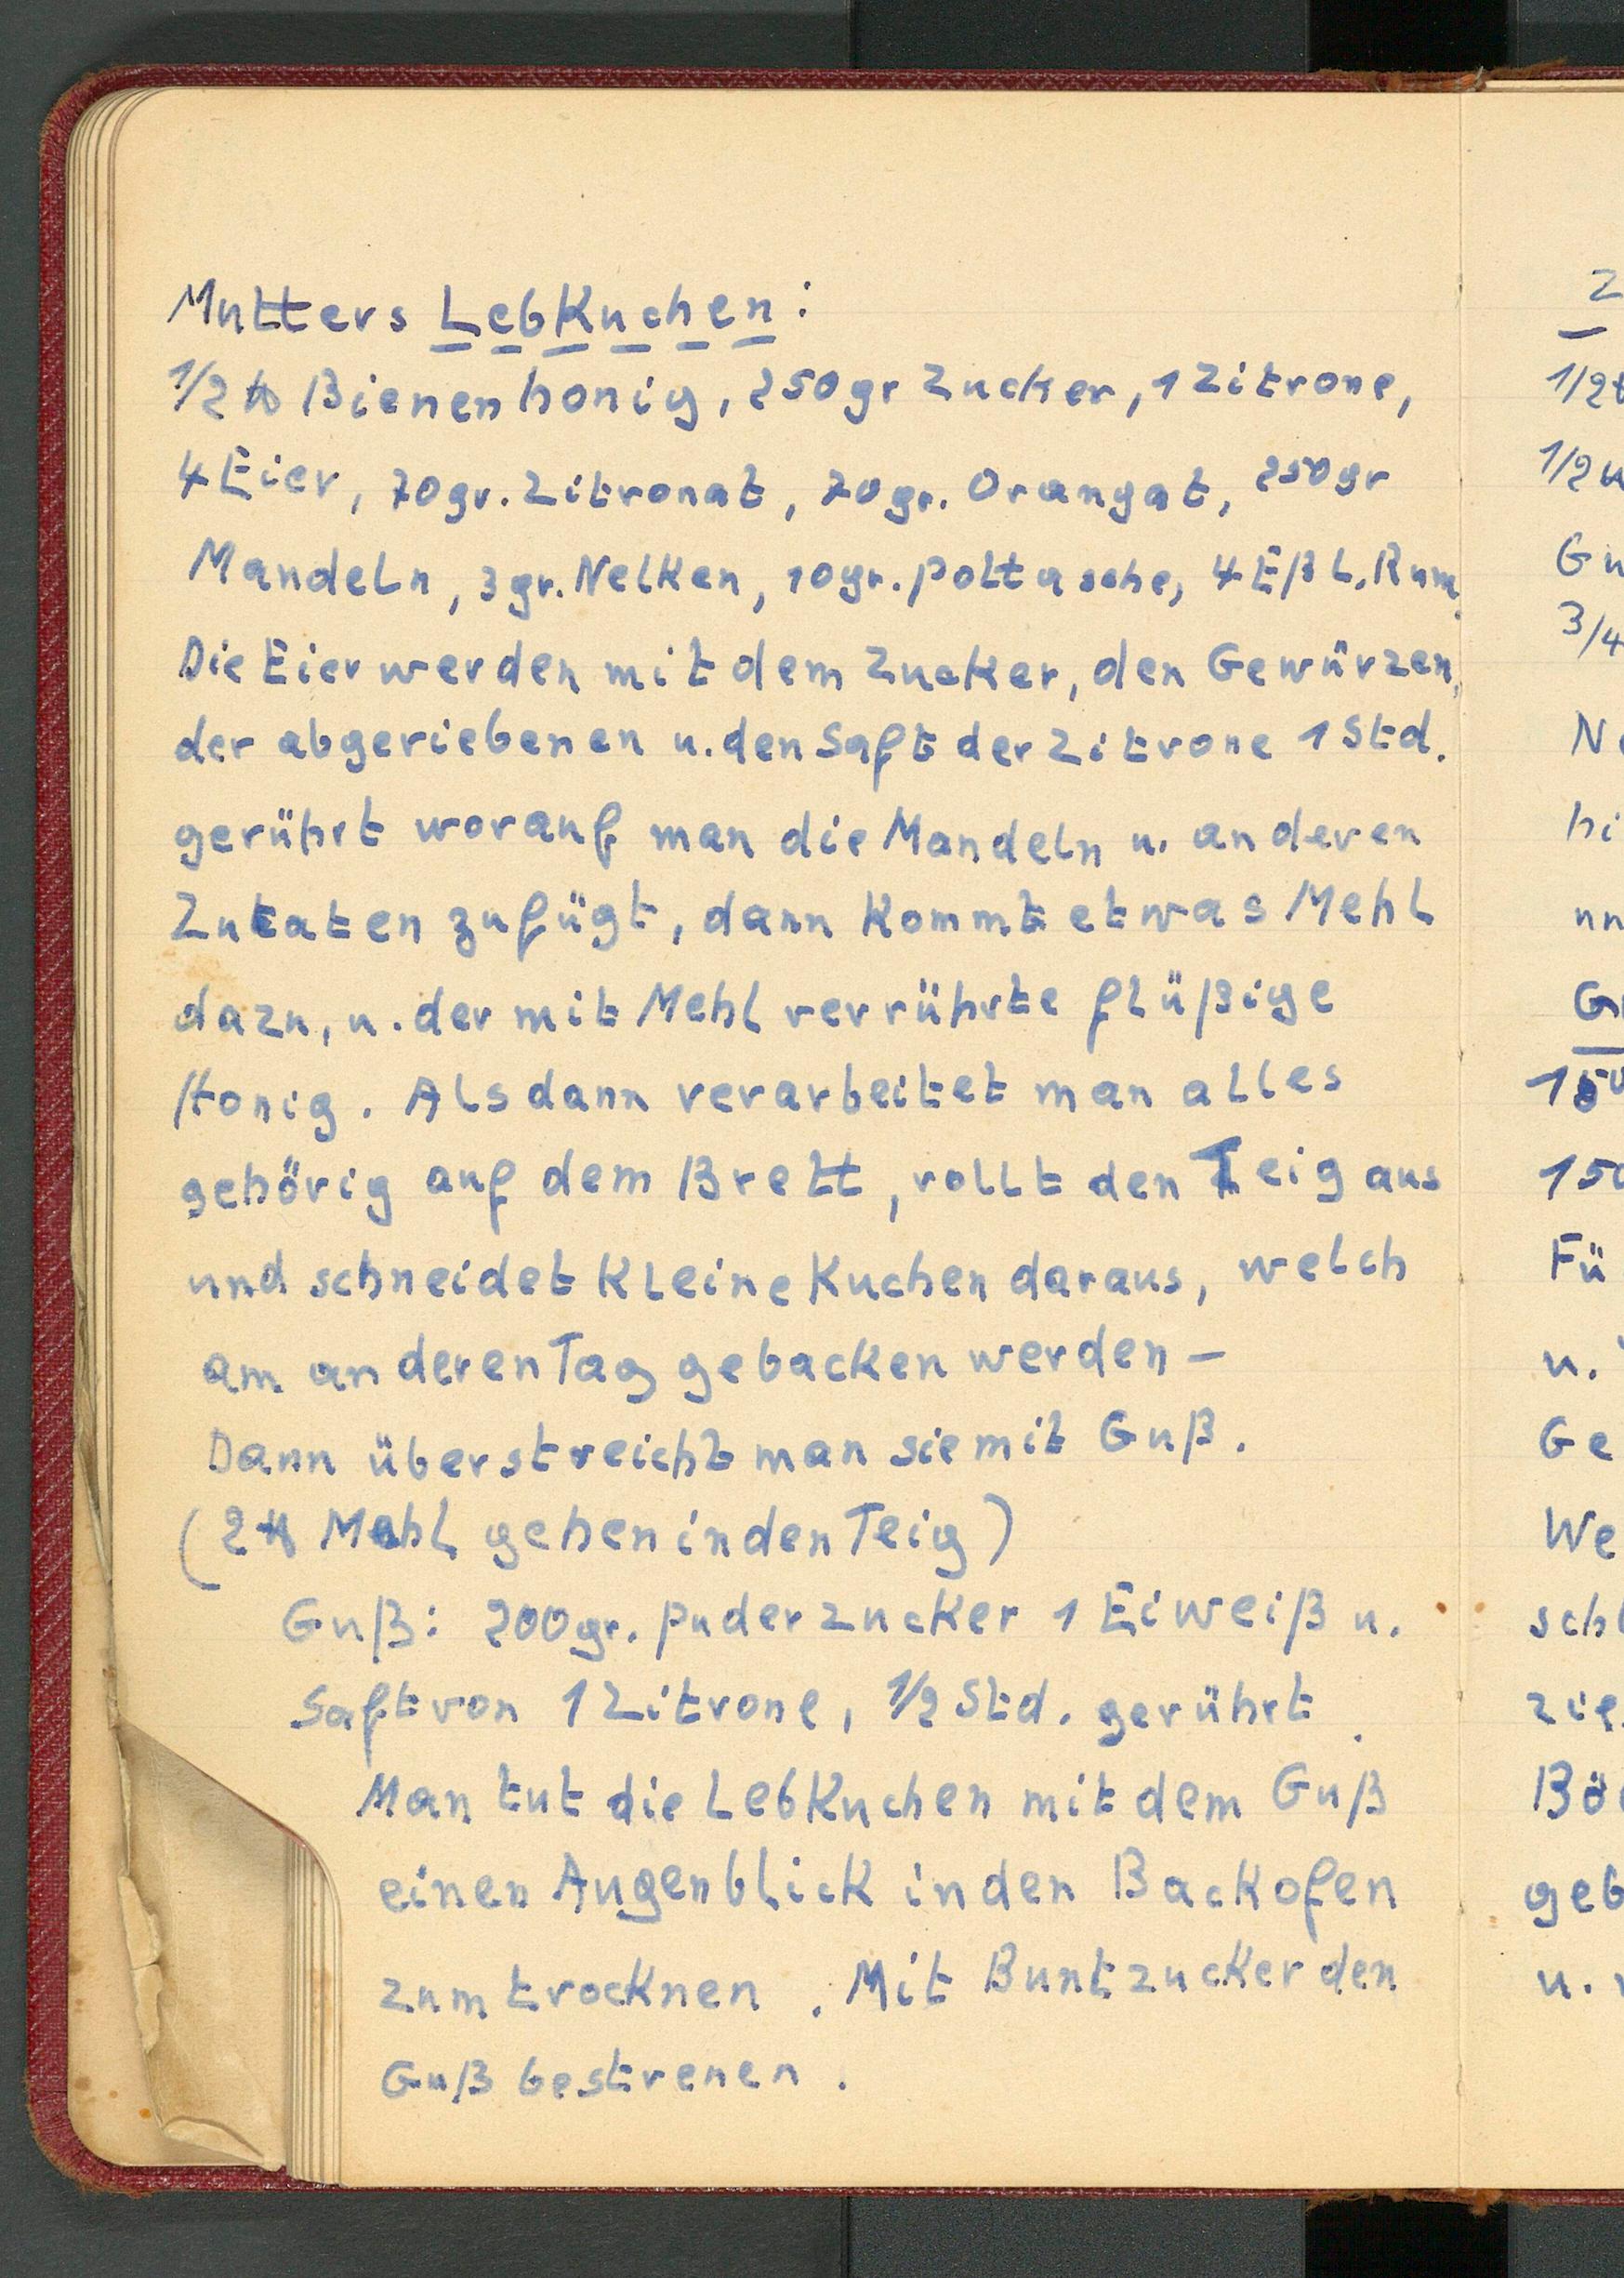 Mutters Lebkuchen:
1/2 ℔ Bienenhonig, 250gr Zucker, 1 Zitrone,
4 Eier, 70gr. Zitronat, 70gr. Orangat, 250gr
Mandeln, 3gr. Nelken, 10gr. Pottasche, 4 Eßl. Rum.
Die Eier werden mit dem Zucker, den Gewürzen,
der abgeriebenen u. den Saft der Zitrone 1 Std.
gerührt worauf man die Mandeln u. anderen
Zutaten zufügt, dann kommt etwas Mehl
dazu, u. der mit Mehl verrührte flüßige
Honig. Alsdann verarbeitet man alles
gehörig auf dem Brett, rollt den Teig aus
und schneidet kleine Kuchen daraus, welch
am anderen Tag gebacken werden –
Dann überstreicht man sie mit Guß.
(2 ℔ Mehl gehen in den Teig)
Guß: 200gr. Puderzucker 1 Eiweiß u.
Saft von 1 Zitrone, 1/2 Std. gerührt.
Man tut die Lebkuchen mit dem Guß
einen Augenblick in den Backofen
zum trocknen. Mit Buntzucker den
Guß bestreuen.
Z
1/2
1/2
Gu
3/4
N
hi
un
G
150
150
Fü
u.
Ge
We
schl
zie
Bö
geb
u.